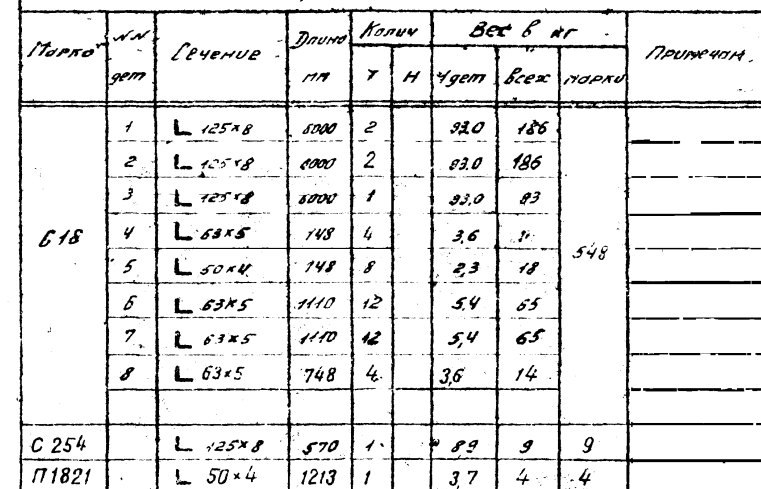 Марка NN дет Сечение Длина мм Колич Т Н Вес в кг 1дет всех марки Примечан.
1 L 125×8 6000 2 93.0 186
2 L 125×8 6000 2 93.0 186
3 L 125×8 6000 1 93.0 93
4 L 63×5 748 4 3,6
5 L 50×4 748 8 2,3 18
Б18 548
6 L 63×5 1110 12 5,4 65
7 L 63×5 1110 12 5,4 65
8 L 63×5 748 4 3,6 14
С 254 L 125×8 570 1 8 9 9 9
П 1821 L 50×4 1213 1 3,7 4 4